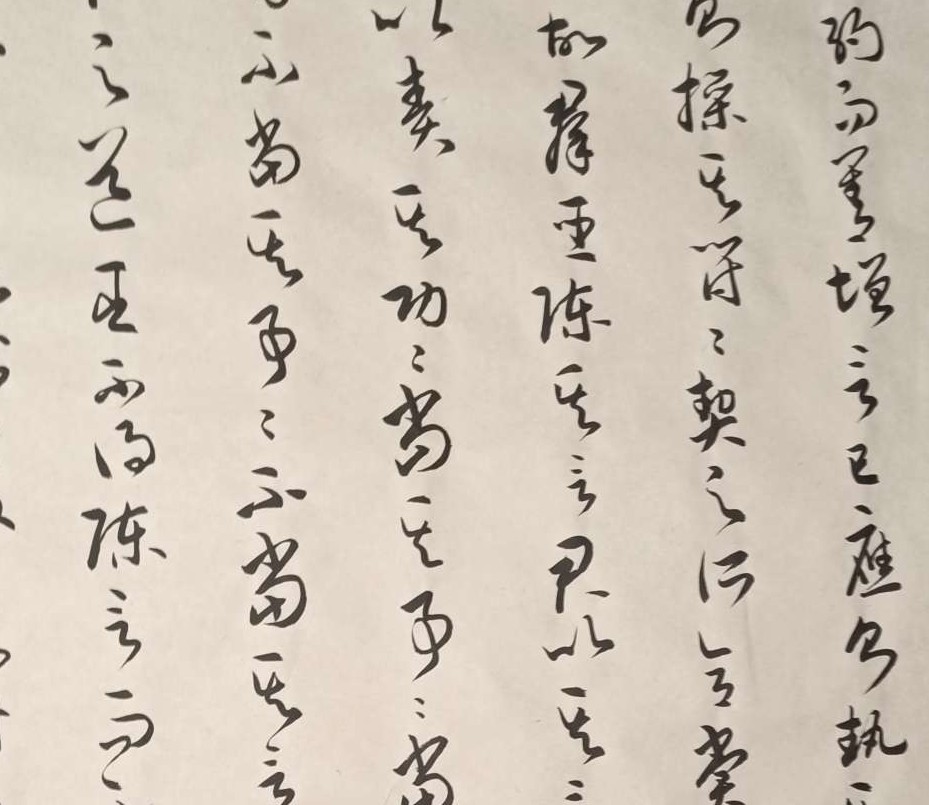 約而善增言已應則執
則操其符〻契之所合賞
故群臣陳其言君以其
以責其功〻當其事〻當
不當其事〻不當其言
之道臣不得陳言而